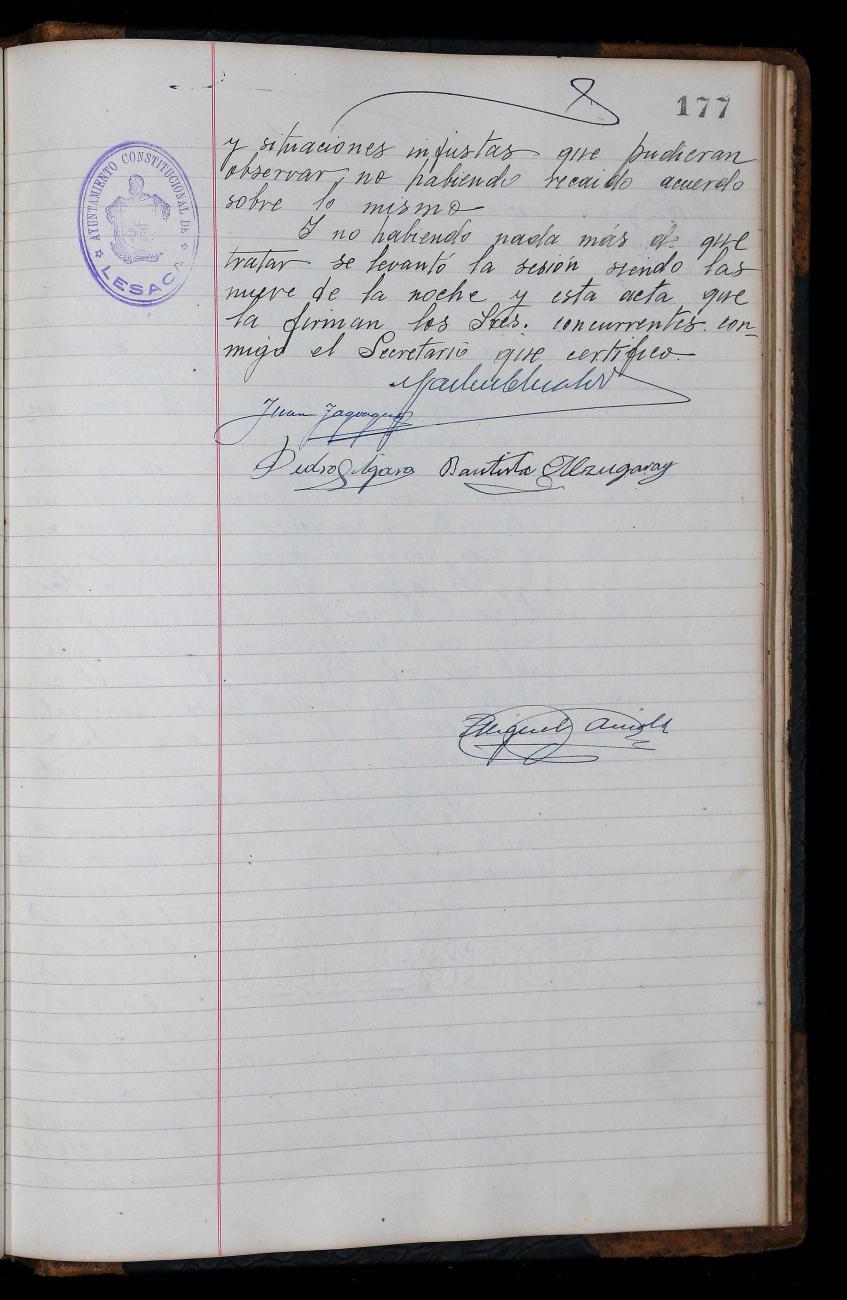 177
AYUNTAMIENTO CONSTITUCIONAL DE
LESACA
y situaciones injustas que pudieran
observar, no habiendo recaido acuerdo
sobre lo mismo
Y no habiendo nada más de que
tratar se levantó la sesión siendo las
nueve de la noche y esta acta que
la firman los Sres. concurrentes con-
migo el Secretario que certifico.
Juan
Pedro Bautista Alzugaray
Miguel